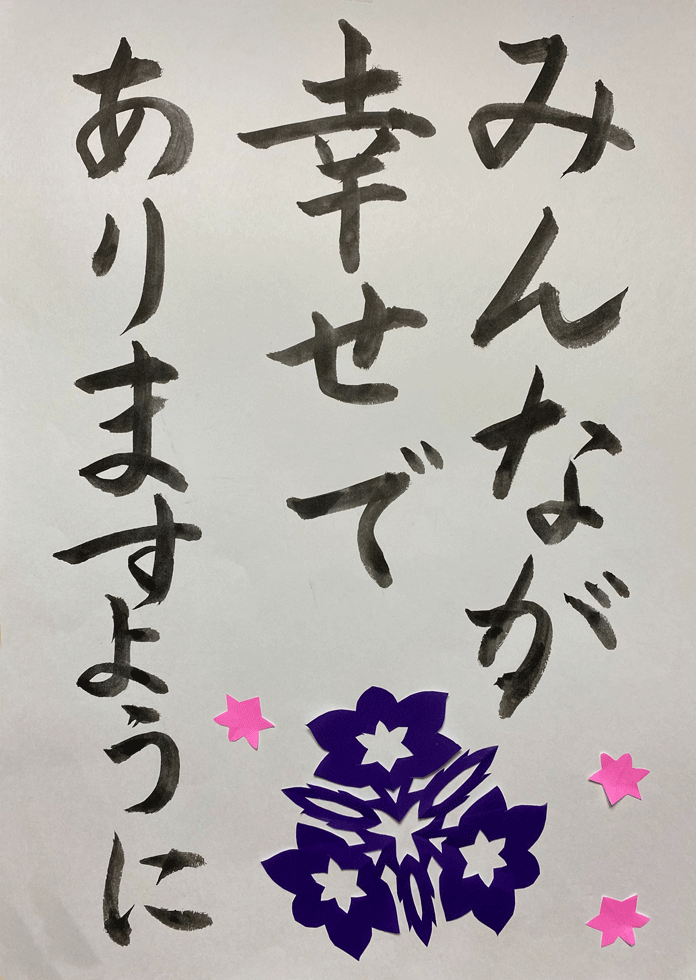 みんなが
幸せで
ありますように